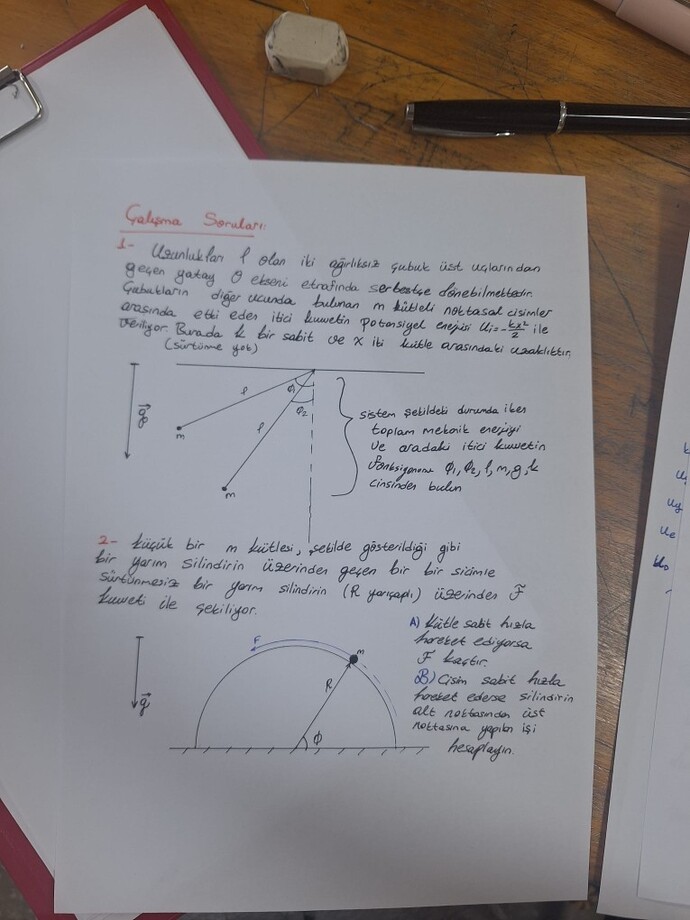 Çalışma Soruları:
1- Uzunlukları l olan iki ağırlıksız çubuk üst uçlarından
geçen yatay O ekseni etrafında serbestçe dönebilmektedir.
Çubukların diğer ucunda bulunan m kütleli noktasal cisimler
arasında etki eden itici kuvvetin potansiyel enerjisi Ui=-kx²/2 ile
veriliyor. Burada k bir sabit ve x iki kütle arasındaki uzaklıktır.
(sürtünme yok)
g
l
l
ϕ1
ϕ2
m
m
sistem şekildeki durumda iken
toplam mekanik enerjiyi
ve aradaki itici kuvvetin
fonksiyonunu ϕ1, ϕ2, l, m, g, k
cinsinden bulun
2- küçük bir m kütlesi, şekilde gösterildiği gibi
bir yarım silindirin üzerinden geçen bir bir sicimle
sürtünmesiz bir yarım silindirin (R yarıçaplı) üzerinden F
kuvveti ile çekiliyor.
A) Kütle sabit hızla
hareket ediyorsa
F kaçtır.
B) Cisim sabit hızla
hareket ederse silindirin
alt noktasından üst
noktasına yapılan işi
hesaplayın.
g
F
m
R
ϕ